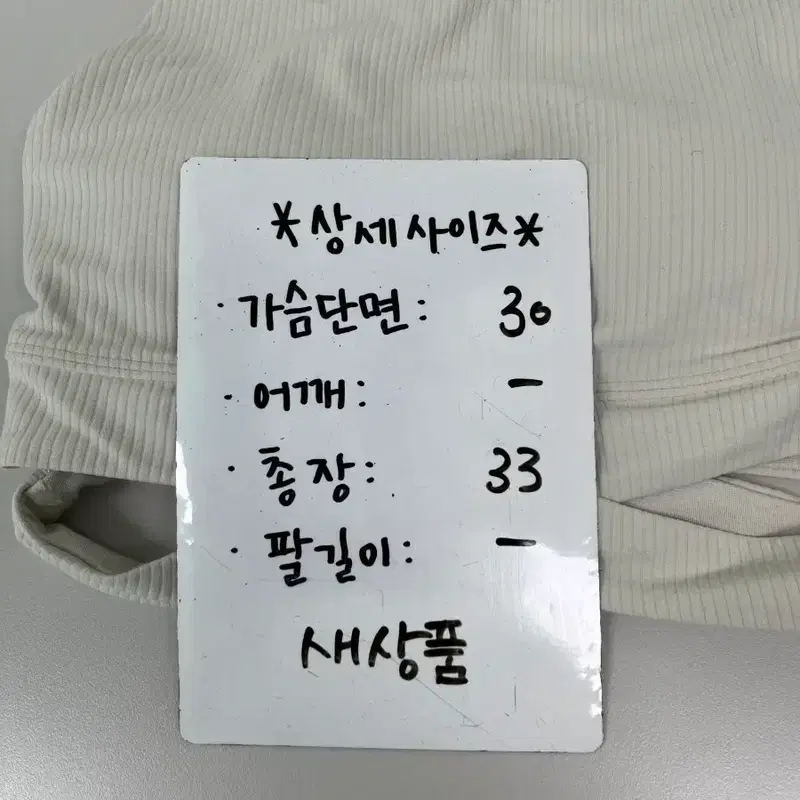 *상세사이즈*
· 가슴단면: 30
· 어깨: -
· 총장: 33
· 팔길이: -
새상품